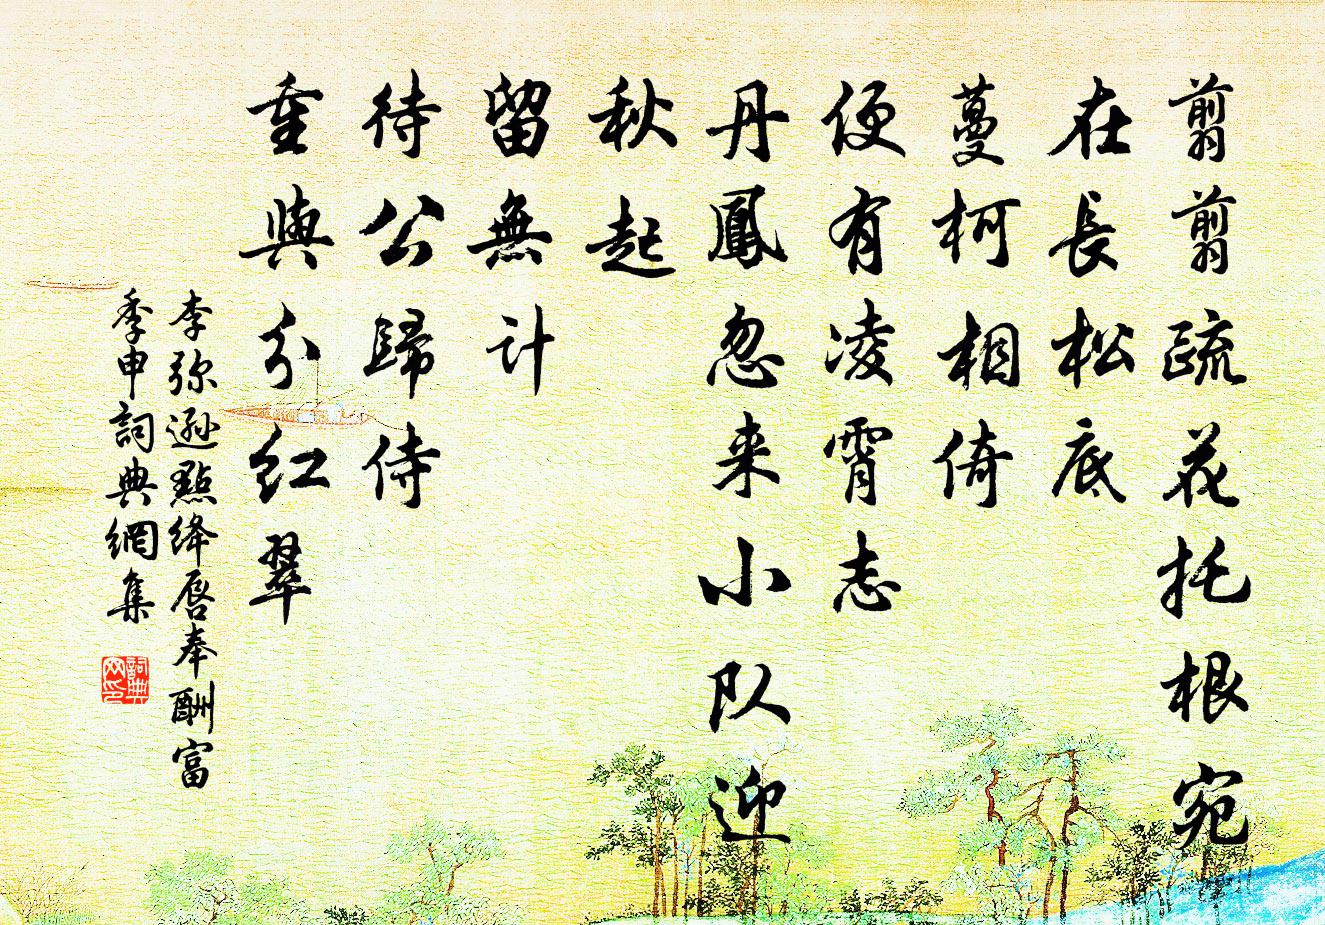 翦翦疏花托根宛
在長松底
蔓柯相倚
便有凌霄志
丹鳳忽来小队迎
秋起
留無計
待公歸侍
重與分红翠
李弥遜點绛唇奉酬富
季申詞典網集
詞典网印